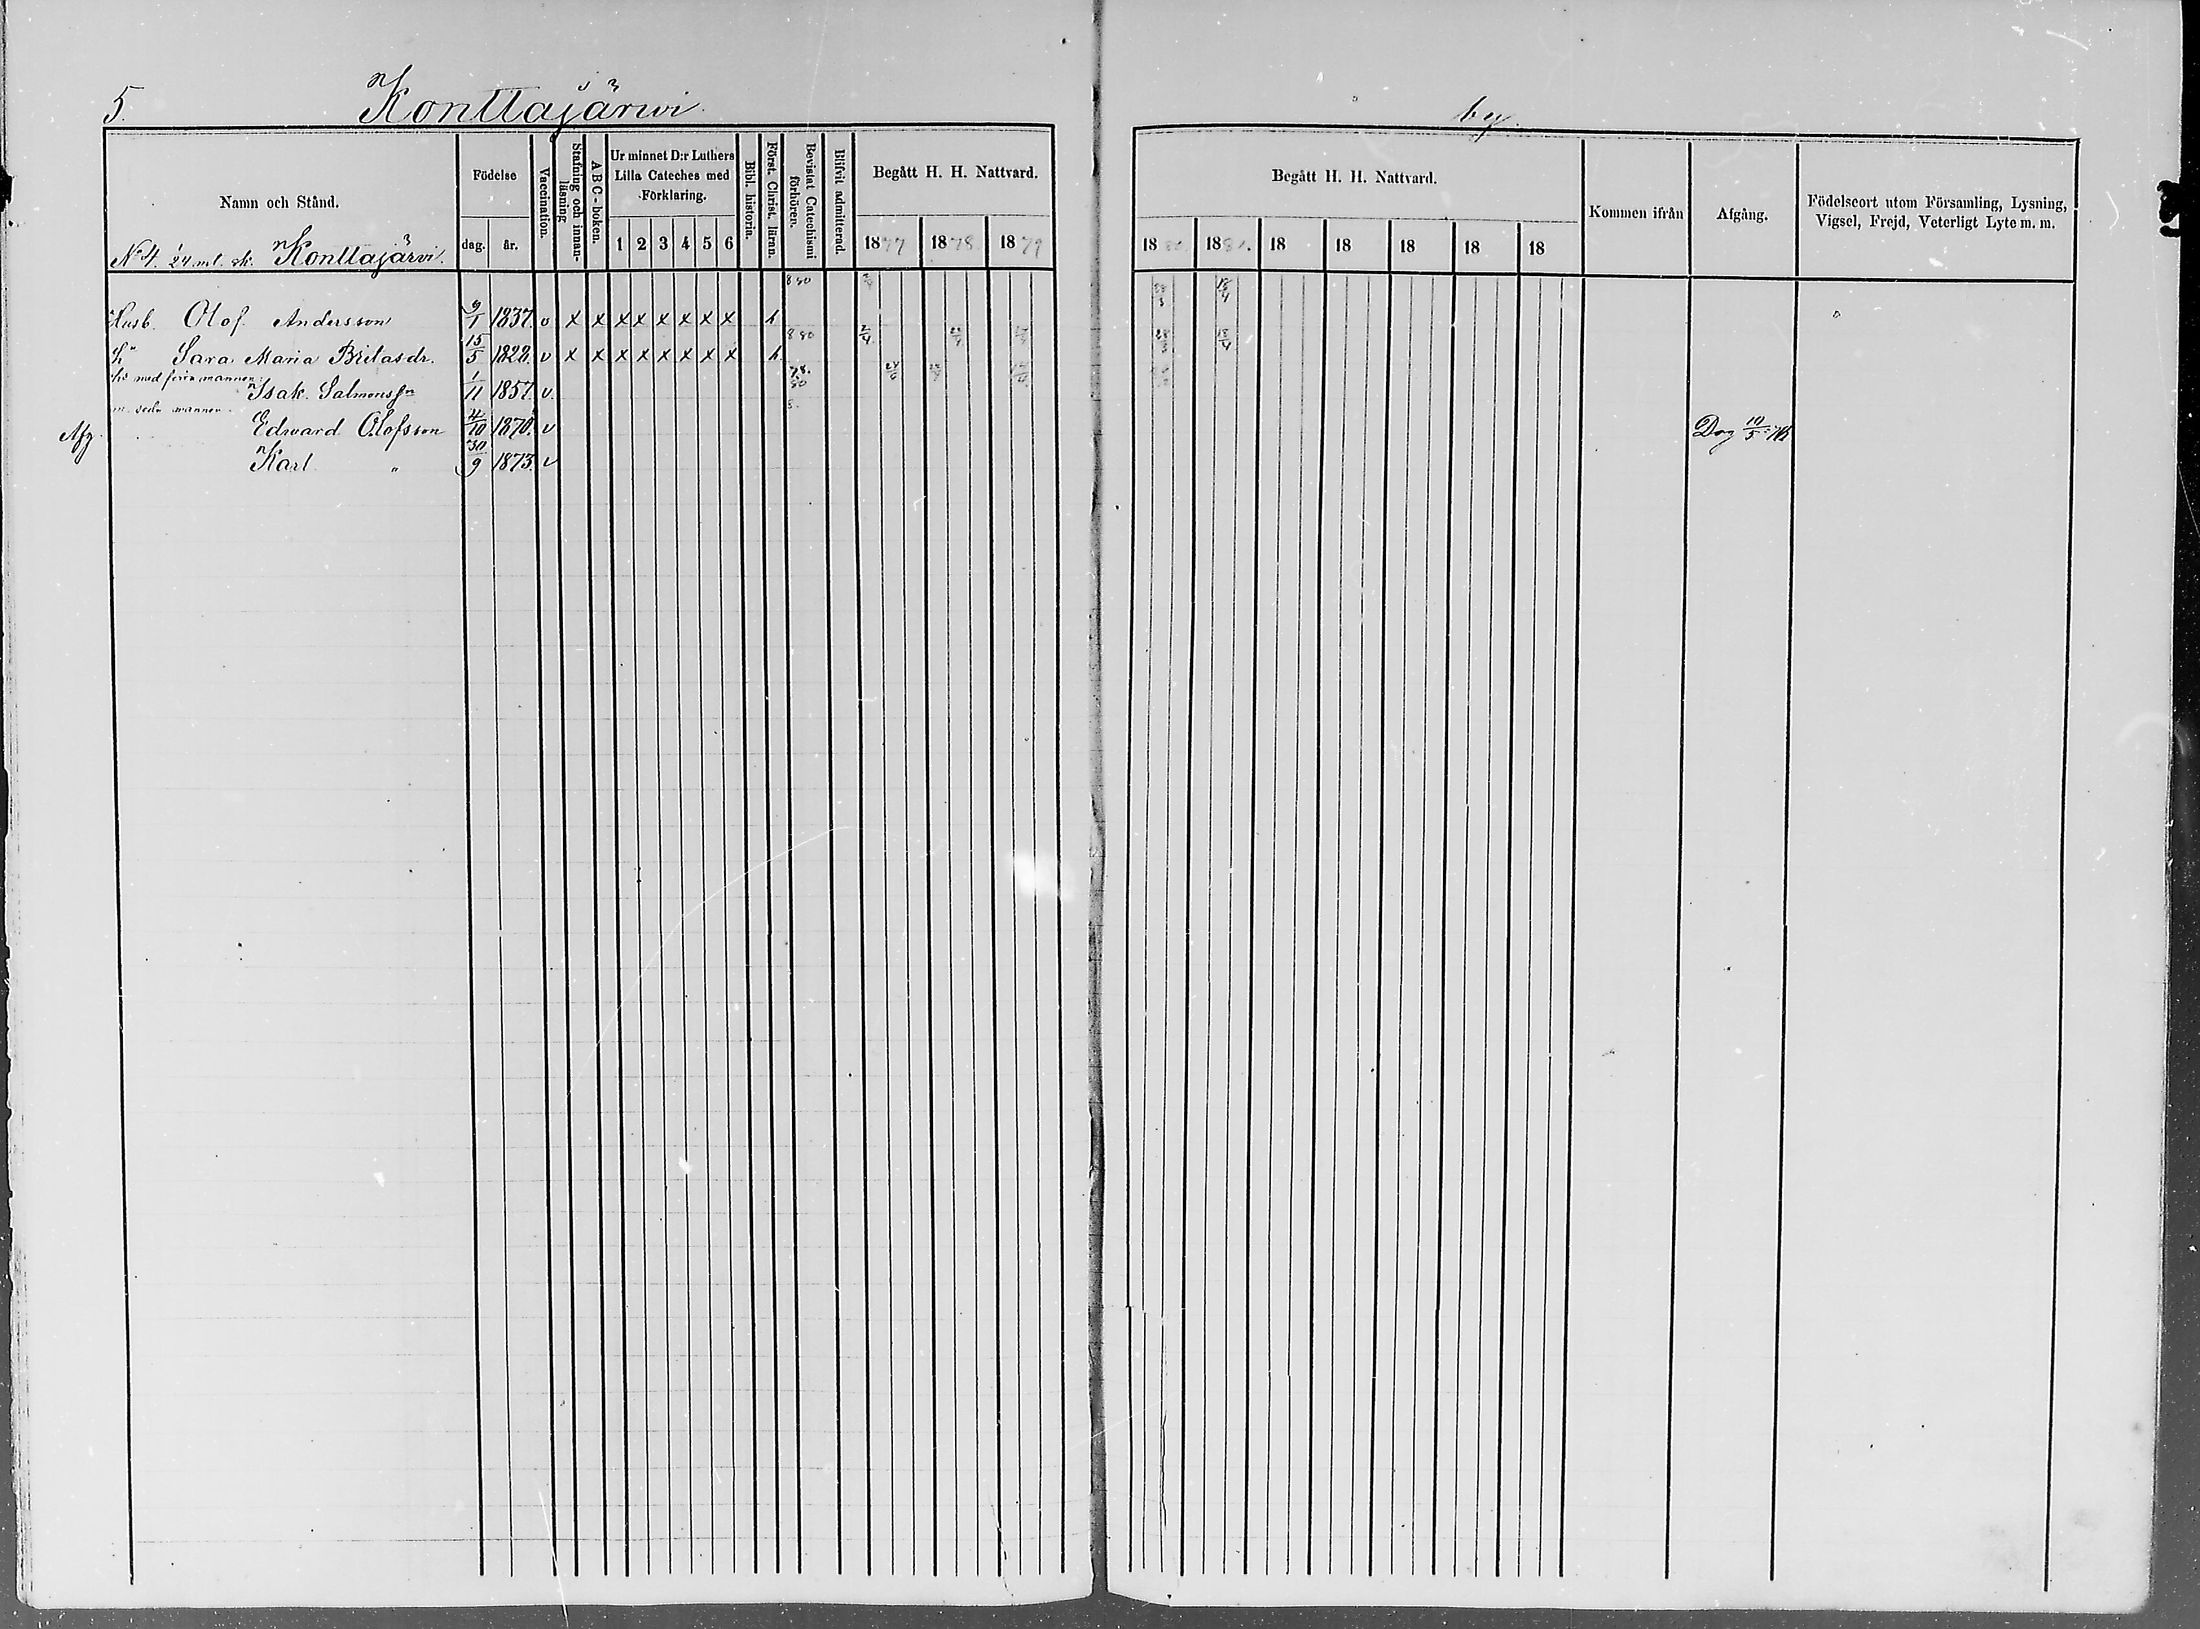 5.
Konttajärwi
by.
Namn och Stånd.
Födelse
dag.
år.
Vaccination.
Stafning och innanläsning
ABC-boken.
Ur minnet D:r Luthers Lilla Cateches med Förklaring.
1 2 3 4 5 6
Bibl. historia.
Först. Christ. läran.
Bevistat Catechismi förhören.
Blifvit admitterad.
Begått H. H. Nattvard.
1877 1878 1879
Begått H. H. Nattvard.
18 1881 18 18 18 18 18
Kommen ifrån
Afgång.
Födelseort utom Församling, Lysning, Vigsel, Frejd, Veterligt Lyte m. m.
No 4. mt. sk. Konttajärvi.
880 18/4
Husb. Olof Andersson 9/1 1837. v x x x x x x x x h
880 2/4 18/4
Sara Maria Britasdr. 15/5 1828. v x x x x x x x x h
med förra mannen:
Isak Salmonssn 1/11 1857. v.
m. sedn mannen
Afg Edward Olofsson 4/10 1870. v
Karl " 30/9 1873. v